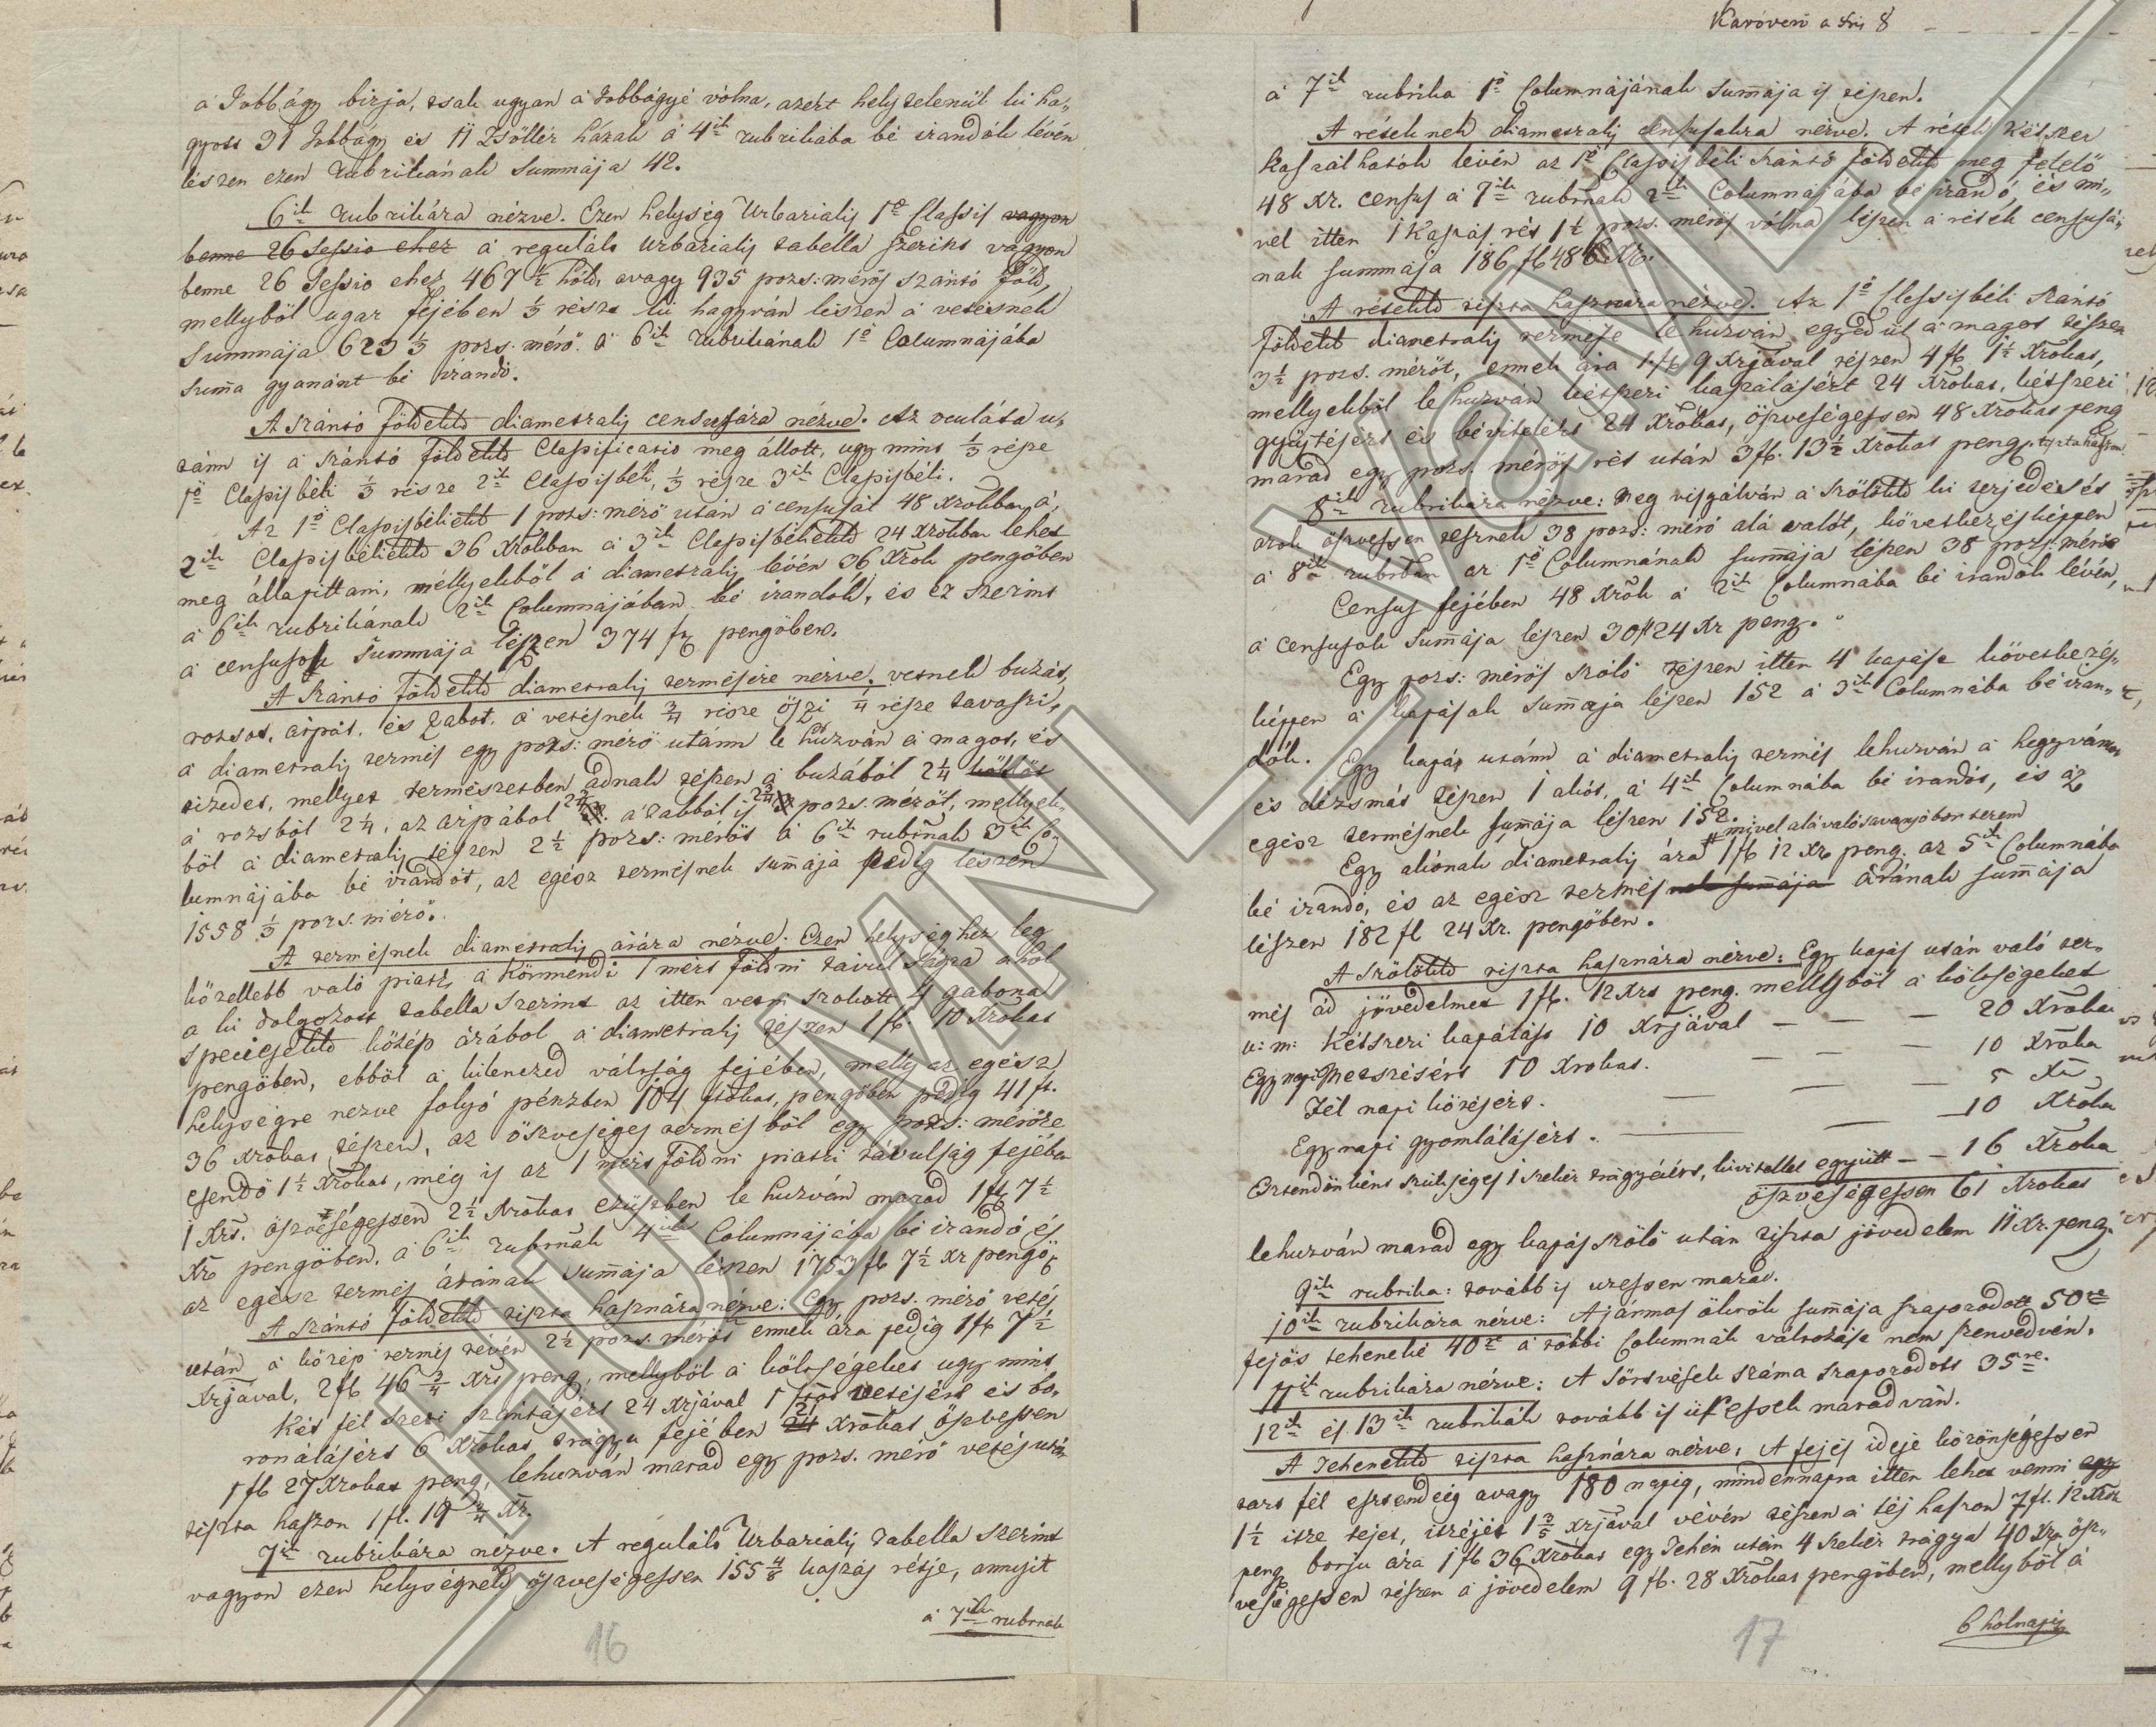 Karóveri a Szi 8
á Jobbágy birja, tsak ugyan a Jobbágyé vólna, azért helytelenűl ki ha,,
gyott 31 Jobbágy és 11 Zsöllér házak á 4ik rubrikába bé irandók lévén
lészen ezen Rubrikának Summája 42.
6ik Rubrikára nézve. Ezen helység Urbarialis 1ő Classis vagyon
benne 26 Sessio ehez á reguláló Urbarialis tabella szerint vagyon
benne 26 Sessio ehez 467 1/2 hóld, avagy 935 pozs: mérős szántó főld,
mellyből ugar fejében 1/3 része ki hagyván lészen á vetésnek
Summája 623 1/3 pozs: mérő. á 6ik Rubrikának 1ő Columnájába
Summa gyanánt bé irandó.
A szántó földekk diametralis censussára nézve. Az oculáta u,,
tánn is á szántó földekk Classificatió meg állott, ugy mint 1/3 része
1ő Classisbéli 1/3 része 2ik Classisbéli, 1/3 része 3ik Classisbéli.
Az 1ő Classisbéliekk 1 pozs: mérő után á censusát 48 xrokban á,
2ik Classisbéliekk 36 Xrokban á 3ik Classisbéliekk 24 Xrokban lehet
meg állapittani, mellyekből á diametralis lévén 36 Xrok pengőben
á 6ik rubrikának 2ik Columnájában bé irandók, és ez szerint
á censusok Summája lészen 374 fr pengőben.
A szántó földekk diametralis termésére nézve. vetnek buzát,
rozsot, árpát, és zabot, á vetésnek 3/4 része őszi 1/4 része tavaszi,
á diametralis termés egy pozs: mérő utánn le húzván á magot, és
tizedet, mellyet természetben adnak tészen á buzából 2 1/4 köblöt
á rozsból 2 1/4, az árpából 2 3/4 á zabból is 2 3/4 pozs. mérőt, mellyek,
ből á diametralis tészen 2 1/2 pozs: mérőt á 6ik rubrnak 3ik Co,
lumnájába bé irandót, az egész termésnek summája pedig lészen
1558 1/3 pozs. mérő.
A termésnek diametralis árára nézve. Ezen helységhez leg
közellebb való piatz, á Körmendi 1 mért földni távulságra ahol
a ki dolgozott tabella szerint az itten vetni szokott 4 gabona
speciesekk közép árából á diametralis tészen 1 ft. 10 Xrokat
pengőben, ebből á kilenczed váltság fejében, melly az egész
helységre nézve folyó pénzben 104 ftokat, pengőben pedig 41 ft.
36 xrokat tészen, az öszveséges termésből egy pozs: mérőre
esendő 1 1/2 Xrokat, még is az 1 mért földni piatzi távulság fejében
1 Xrt. öszveségessen 2 1/2 Xrokat ezüstben le huzván marad 1 ft 7 1/2
Xr pengőben, á 6ik rubrnak 4ik Columnájába bé irandó és
az egész termés árának summája lészen 1753 ft 7 1/2 xr pengőb
A szántó földekk tiszta hasznára nézve: Egy pozs. mérő vetés
után á közép termés tévén 2 1/2 pozs. mérőt ennek ára pedig 1 ft 7 1/2
Xrjával, 2 ft 46 3/4 Xrt peng, mellyből á költségeket ugy mint
Két fél szeri szántásért 24 xrjával vetésért és bo,
ronálásért 6 Xrokat trágya fejében 24 Xrokat öszvessen
1 ft 27 Xrokat peng, lehuzván marad egy pozs. mérő vetés után
tiszta haszon 1 ft. 19 3/4 Xr.
7ik rubrikára nézve. A reguláló Urbarialis tabella szerint
vagyon ezen helységnek öszveségessen 155 4/8 kaszás rétje, annyit
á 7ik rubrnak
16
á 7ik rubrika 1ő Columnájának summája is tészen.
A réteknek diametralis censussakra nézve. A rétek Kétszer
kaszálhatók lévén az 1ő Classisbéli szántó földekk meg felelő
48 xr. census á 7ik rubrnak 2ik Columnájába bé irandó, és mi,,
vel itten 1 Kaszás rét 1 1/2 pozs. mérős vólna lészen á rétek censussá,
nak summája 186 ft 48 Xr.
A rétekk tiszta hasznára nézve. Az 1ő Classisbéli szántó
földekk diametralis termése lehuzván egyedűl á magot tészen
3 1/2 pozs. mérőt, ennek ára 1 ft 9 xrjával tészen 4 ft 1 1/2 Xrokat,
mellyekből lehuzván kétszeri kaszálásért 24 Xrokat, kétszeri
gyüjtésért és bévitelért 24 Xrokat, öszveségessen 48 Xrokat peng
marad egy pozs. mérős rét után 3 ft. 13 1/2 Xrokat peng. tiszta haszon
8ik rubrikára nézve: Meg visgálván á szőlőkk ki terjedését
azok öszvessen tesznek 38 pozs: mérő alá valót, következésképpen
á 8ik rubrban az 1ő Columnának summája lészen 38 pozs: mérő
Census fejében 48 Xrok á 2ik Columnába bé irandók lévén,
á censusok Summája lészen 30 ft 24 Xr peng.
Egy pozs: mérős szőlő tészen itten 4 kapást következés,
képpen á kapások summája lészen 152 á 3ik Columnába bé iran,,
dók. Egy kapás utánn á diametralis termés lehuzván á hegyvámot
és dézsmát tészen 1 akót, á 4ik Columnába bé irandót, és az
egész termésnek summája lészen 152.
mivel alá való savanyó bor terem
Egy akónak diametralis ára 1 ft 12 Xr peng. az 5ik Columnába
bé irandó, és az egész termésnek summája árának summája
lészen 182 fl 24 Xr. pengőben.
A szőlőkk tiszta hasznára nézve: Egy kapás után való ter,
més ád jövedelmet 1 ft. 12 Xrt peng. mellyből á költségeket
u: m: Kétszeri kapálást 10 Xrjával — — — 20 Xroka
Egy napi Metszésért 10 Xrokat. — — — 10 Xroka
Fél napi kötésért. — — — 5 Xr
Egy napi gyomlálásért. — — — 10 Xroka
Esztendőnként szükséges 1 szekér trágyáért, kivitellel együtt — — 16 Xroka
öszveségessen 61 Xrokat
lehuzván marad egy kapás szőlő után tiszta jövedelem 11 Xr. peng.
9ik rubrika: tovább is uressen marad.
10ik rubrikára nézve: A jármos ökrök summája szaporodott 50re
fejős teheneké 40re á többi Columnák változást nem szenvedvén.
11ik rubrikára nézve: A Sörtvések száma szaporodott 35re.
12ik és 13ik rubrikák tovább is üressek maradván.
A Tehenekk tiszta hasznára nézve. A fejés ideje közönségessen
tart fél esztendeig avagy 180 napig, mindennapra itten lehet venni egy
1 1/2 itze tejet, itzéjét 1 3/5 xrjával vévén tészen á téj haszon 7 ft. 12 Xrok
peng borju ára 1 ft 36 Xrokat egy Tehén után 4 szekér trágya 40 Xr, ösz,,
veségessen tészen á jövedelem 9 ft. 28 Xrokat pengőben, mellyből á
6 holnapig
17
HU MNL VaML